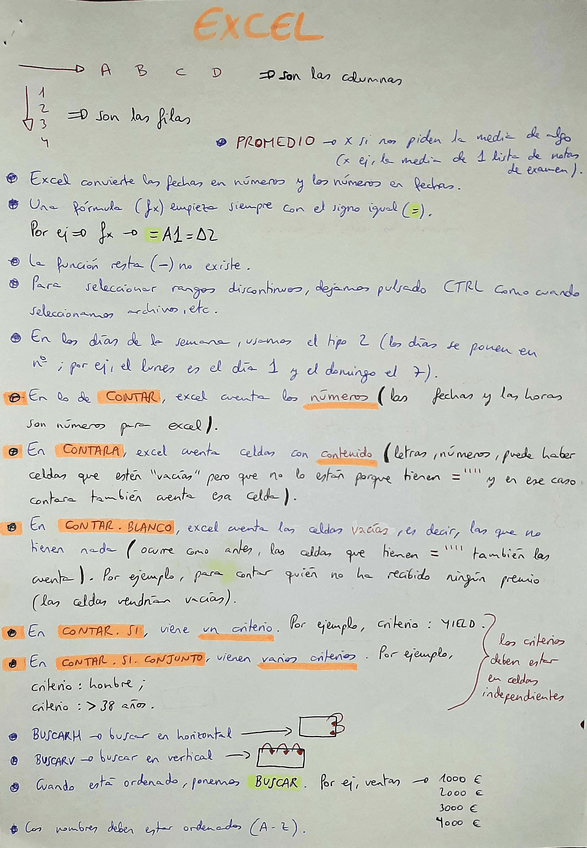 EXCEL
A B C D ⇒ son las columnas
1
2
3
4
⇒ son las filas
PROMEDIO → x si nos piden la media de algo
(x ej, la media de 1 lista de notas
de examen).
Excel convierte las fechas en números y los números en fechas.
Una fórmula (fx) empieza siempre con el signo igual (=).
Por ej ⇒ fx → =A1=A2
La función resta (-) no existe.
Para seleccionar rangos discontinuos, dejamos pulsado CTRL como cuando
seleccionamos archivos, etc.
En los días de la semana, usamos el tipo 2 (los días se ponen en
nº; por ej, el lunes es el día 1 y el domingo el 7).
En lo de CONTAR, excel cuenta los números (las fechas y las horas
son números para excel).
En CONTARA, excel cuenta celdas con contenido (letras, números, puede haber
celdas que estén "vacías" pero que no lo están porque tienen ="" y en ese caso
contara también cuenta esa celda).
En CONTAR.BLANCO, excel cuenta las celdas vacías, es decir, las que no
tienen nada (ocurre como antes, las celdas que tienen ="" también las
cuenta). Por ejemplo, para contar quién no ha recibido ningún premio
(las celdas vendrían vacías).
En CONTAR.SI, viene un criterio. Por ejemplo, criterio: YIELD.
En CONTAR.SI.CONJUNTO, vienen varios criterios. Por ejemplo,
criterio: hombre;
criterio: >38 años.
los criterios
deben estar
en celdas
independientes
BUSCARH → buscar en horizontal →
BUSCARV → buscar en vertical →
Cuando está ordenado, ponemos BUSCAR. Por ej, ventas → 1000 €
2000 €
3000 €
4000 €
Los nombres deben estar ordenados (A-Z).